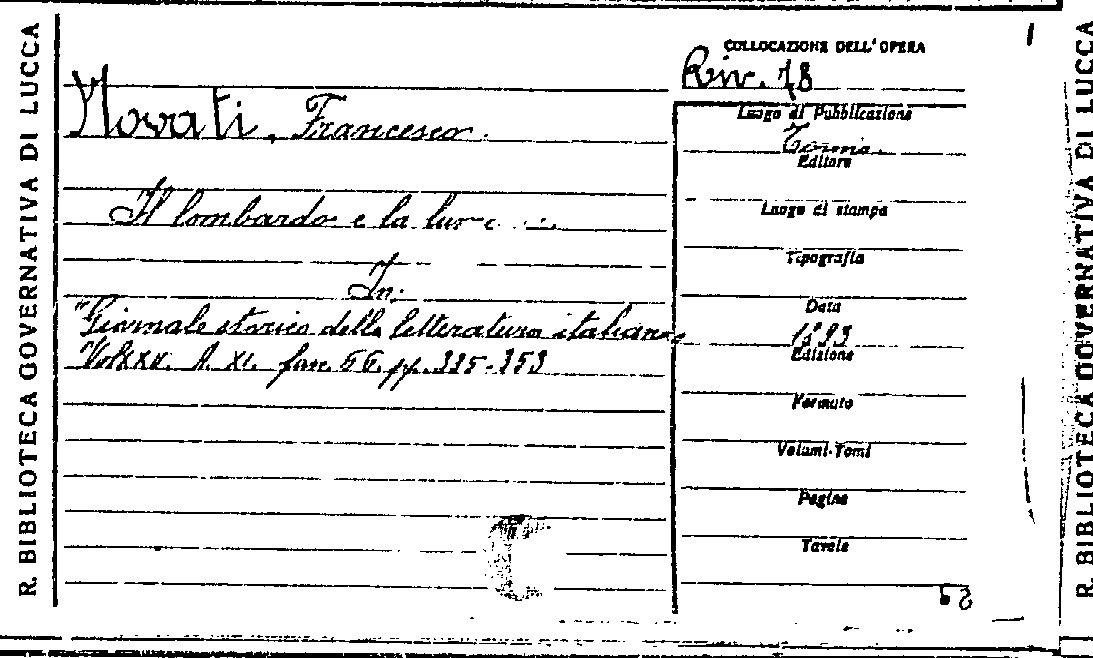 R. BIBLIOTECA GOVERNATIVA DI LUCCA
COLLOCAZIONE DELL'OPERA
Riv. 78
Novati, Francesco.
Luogo di Pubblicazione
Torino.
Editore
Il lombardo e la
Luogo di stampa
Tipografia
In:
Data
"Giornale storico della letteratura italiana"
1893
Vol. XXII. A. XI. fasc. 66. pp. 335-353
Edizione
Formato
Volumi-Tomi
Pagine
Tavole
R. BIBLIOTECA GOVERNATIVA DI LUCCA